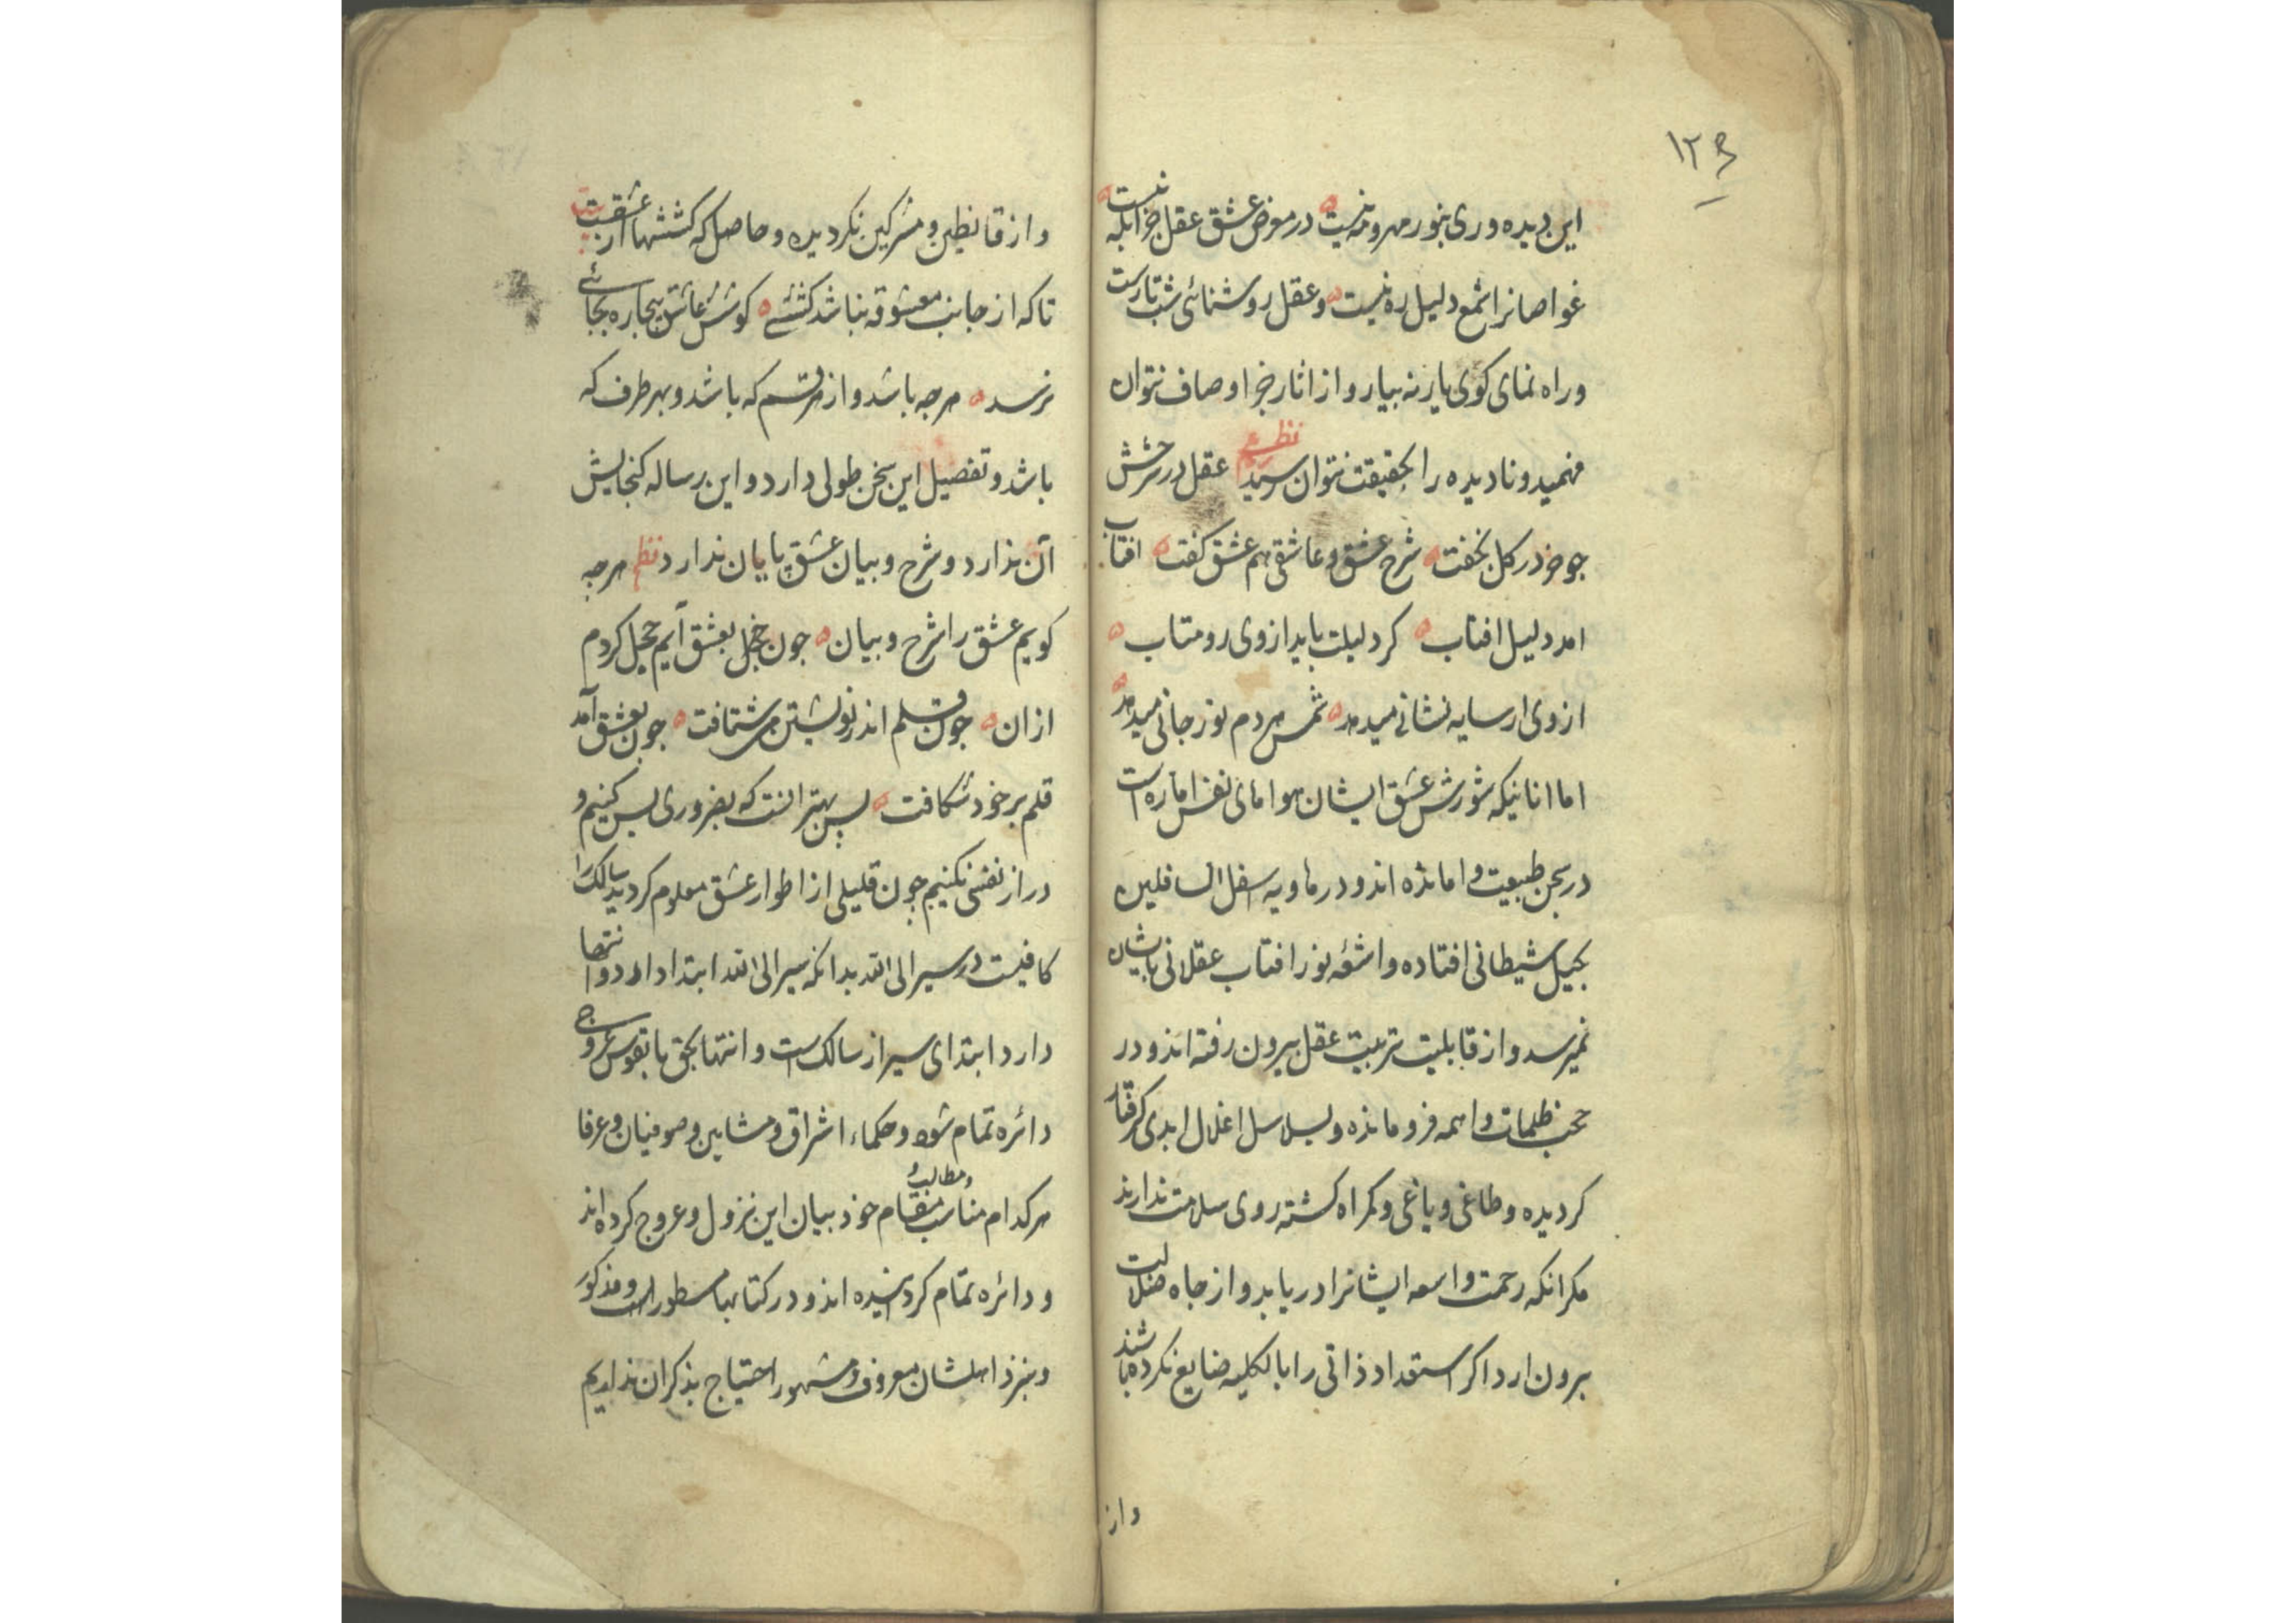 ۱۲۶
این دیده وری بنور مهر و مه نیست در معرض عشق عقل جز ابله نیست
غواصانرا شمع دلیل ره نیست و عقل روشنائی شب تارست
و راه نمای کوی یار نه بیار و از اثار جز اوصاف نتوان
فهمید و نادیده را بحقیقت نتوان رسید نظم عقل در شرحش
چو خر در کل بخفت شرح عشق و عاشقی هم عشق کفت افتاب
امد دلیل افتاب کر دلیلت باید از وی رو متاب
از وی ار سایه نشانی میدهد شمس هر دم نور جانی میدهد
اما انانیکه شورش عشق ایشان هواهای نفس اماره است
در سجن طبیعت وامانده اند و در هاویه اسفل السافلین
بحیل شیطانی افتاده و اشعه نور افتاب عقلانی بایشان
نمیرسد و از قابلیت تربیت عقل بیرون رفته اند و در
حجب ظلمات واهمه فرو مانده و بسلاسل اغلال ابدی کرفتار
کردیده و طاغی و یاغی و کمراه کشته روی سلامت ندارند
مکر انکه رحمت واسعه ایشانرا دریابد و از چاه ضلالت
برون ارد اکر استعداد ذاتی را بالکلیه ضایع نکرده باشند
و از
و از قانطین و مشرکین نکردیده و حاصل که کششها از عشقست بیت
تا که از جانب معشوقه نباشد کششی کوشش عاشق بیچاره بجائی
نرسد هر چه باشد و از هر قسم که باشد و بهر طرف که
باشد و تفصیل این سخن طولی دارد و این رساله کنجایش
آن ندارد و شرح و بیان عشق پایان ندارد نظم هر چه
کویم عشق را شرح و بیان چون بعشق آیم خجل کردم
ازان چون قلم اندر نوشتن می شتافت چون بعشق آمد
قلم بر خود شکافت پس بهتر انست که بضروری بس کنیم و
دراز نفسی نکنیم چون قلیلی از اطوار عشق معلوم کردید سالک را
کافیست در سیر الی الله بدانکه سیر الی الله ابتدا دارد و انتها
دارد ابتدای سیر از سالک است و انتها بحق تا بقوس عروج
دائره تمام شود و حکماء اشراق و مشایین و صوفیان و عرفا
هر کدام مناسب مقام و مطالب خود بیان این نزول و عروج کرده اند
و دائره تمام کردانیده اند و در کتابها مسطور است و مذکور
و نزد اهلشان معروف و مشهور احتیاج بذکر ان نداریم